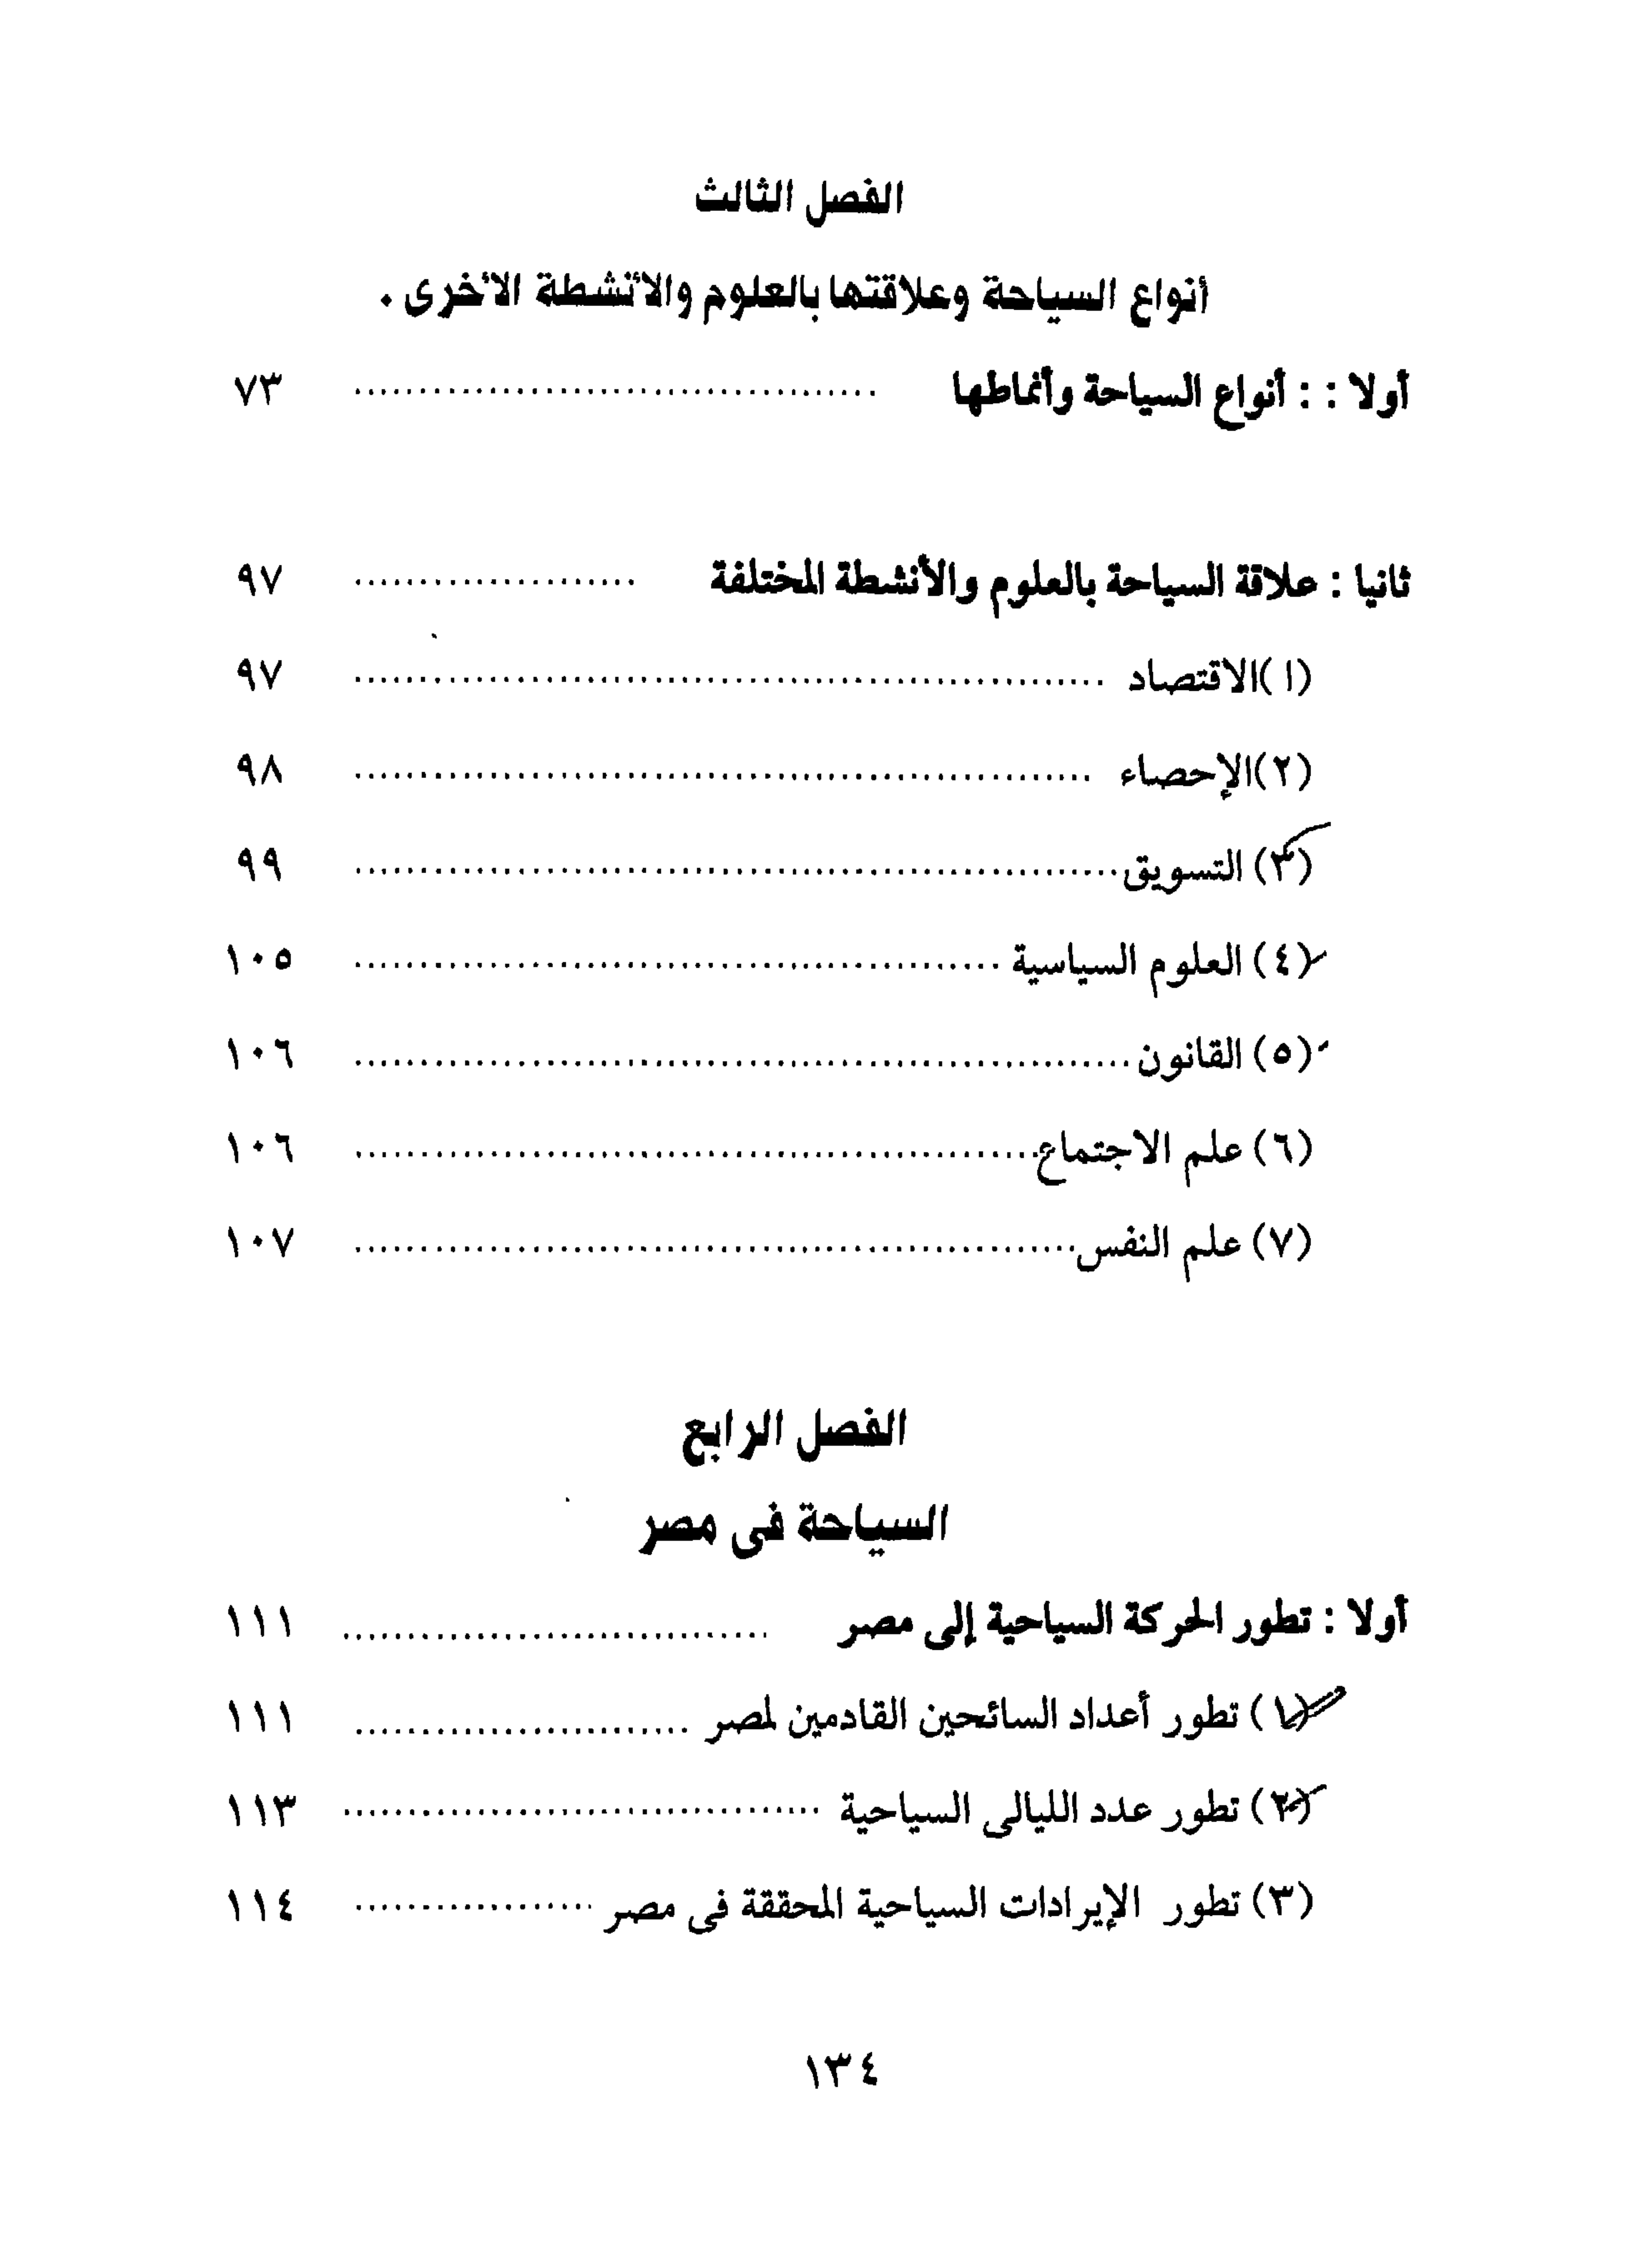 الفصل الثالث
أنواع السياحة وعلاقتها بالعلوم والأنشطة الأخرى .
أولا : : أنواع السياحة وأنماطها ........................................ ٧٣
ثانيا : علاقة السياحة بالعلوم والأنشطة المختلفة ...................... ٩٧
(١)الاقتصاد ........................................................ ٩٧
(٢)الإحصاء ........................................................ ٩٨
(٣) التسويق........................................................ ٩٩
(٤) العلوم السياسية ................................................ ١٠٥
(٥) القانون........................................................ ١٠٦
(٦) علم الاجتماع.................................................... ١٠٦
(٧) علم النفس...................................................... ١٠٧
الفصل الرابع
السياحة فى مصر
أولا : تطور الحركة السياحية إلى مصر ................................. ١١١
(١) تطور أعداد السائحين القادمين لمصر .......................... ١١١
(٢) تطور عدد الليالى السياحية ..................................... ١١٣
(٣) تطور الإيرادات السياحية المحققة فى مصر ................... ١١٤
١٣٤